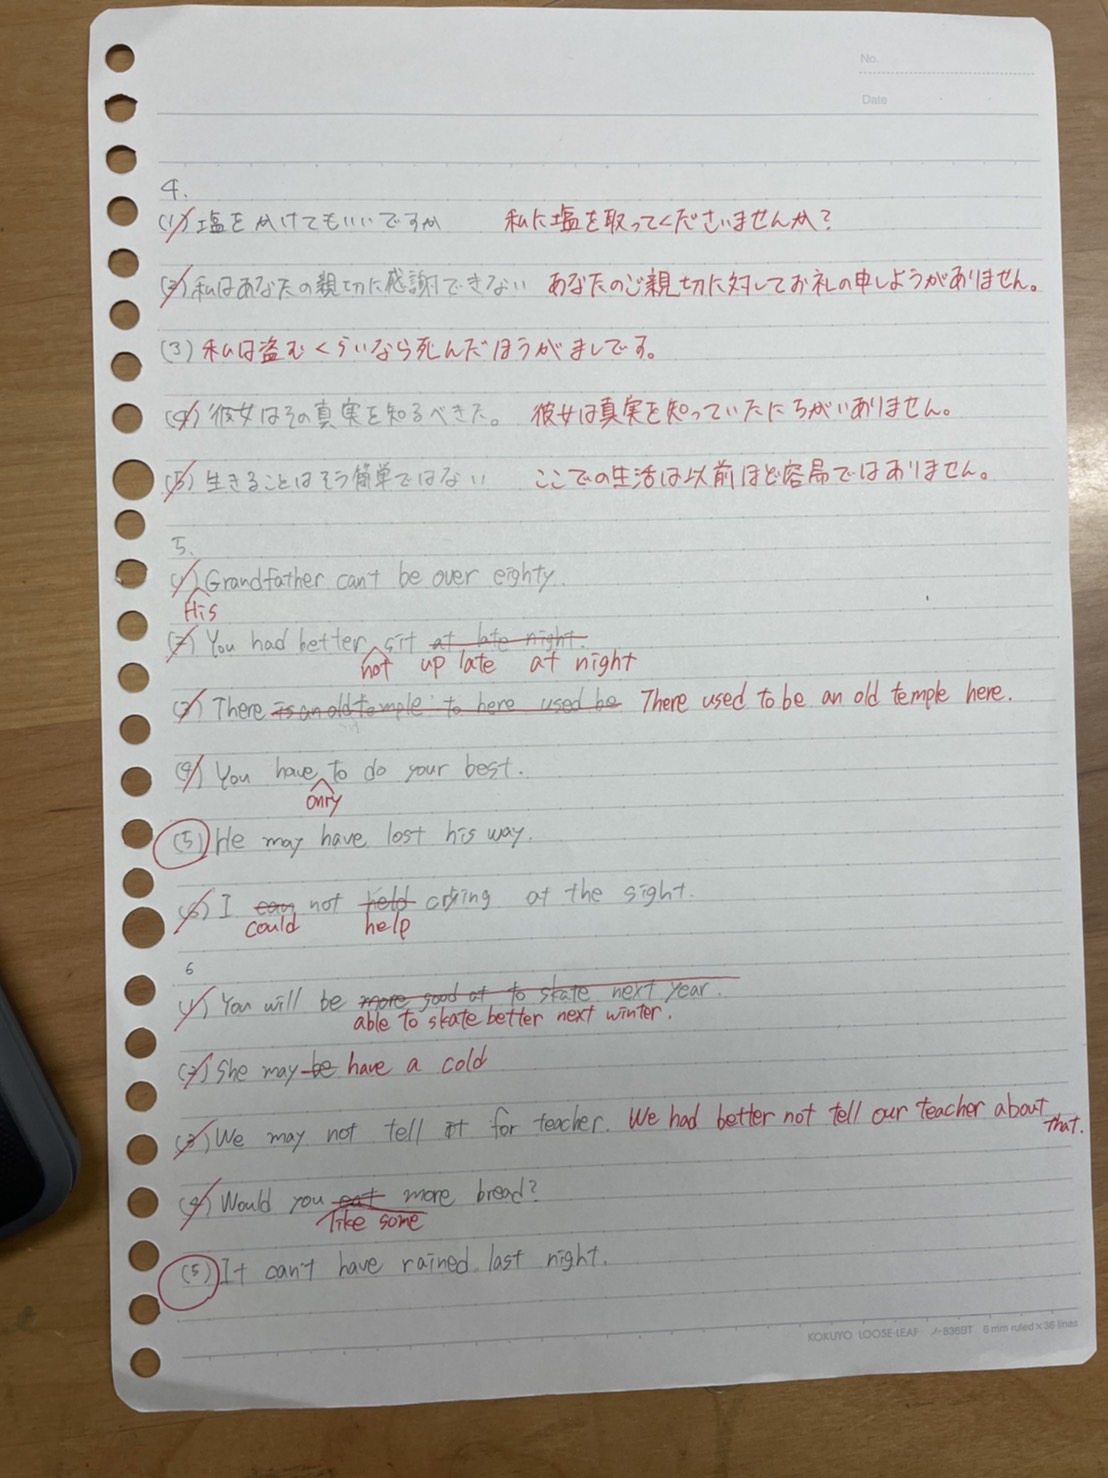 No.
Date
4.
(1) 塩をかけてもいいですか 私に塩を取ってくださいませんか?
(2) 私はあなたの親切に感謝できない あなたのご親切に対してお礼の申しようがありません。
(3) 私は盗むくらいなら死んだほうがましです。
(4) 彼女はその真実を知るべきた。 彼女は真実を知っていたにちがいありません。
(5) 生きることはそう簡単ではない ここでの生活は以前ほど容易ではありません。
5.
(1) Grandfather can't be over eighty.
His
(2) You had better sit at late night.
not up late at night
(3) There is an old temple to here used be There used to be an old temple here.
(4) You have to do your best.
onry
(5) He may have lost his way.
(6) I can not held crying at the sight.
could help
6
(1) You will be more good at to skate next year.
able to skate better next winter.
(2) She may be have a cold
(3) We may not tell it for teacher. We had better not tell our teacher about
that.
(4) Would you eat more bread?
like some
(5) It can't have rained last night.
KOKUYO LOOSE-LEAF ノ-836BT 6 mm ruled×36 lines